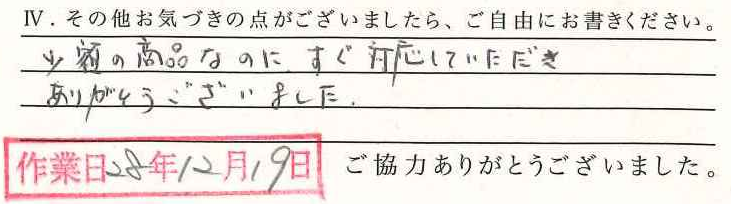 Ⅳ．その他お気づきの点がございましたら、ご自由にお書きください。
少額の商品なのに、すぐ対応していただき
ありがとうございました．
作業日28年12月19日 ご協力ありがとうございました。